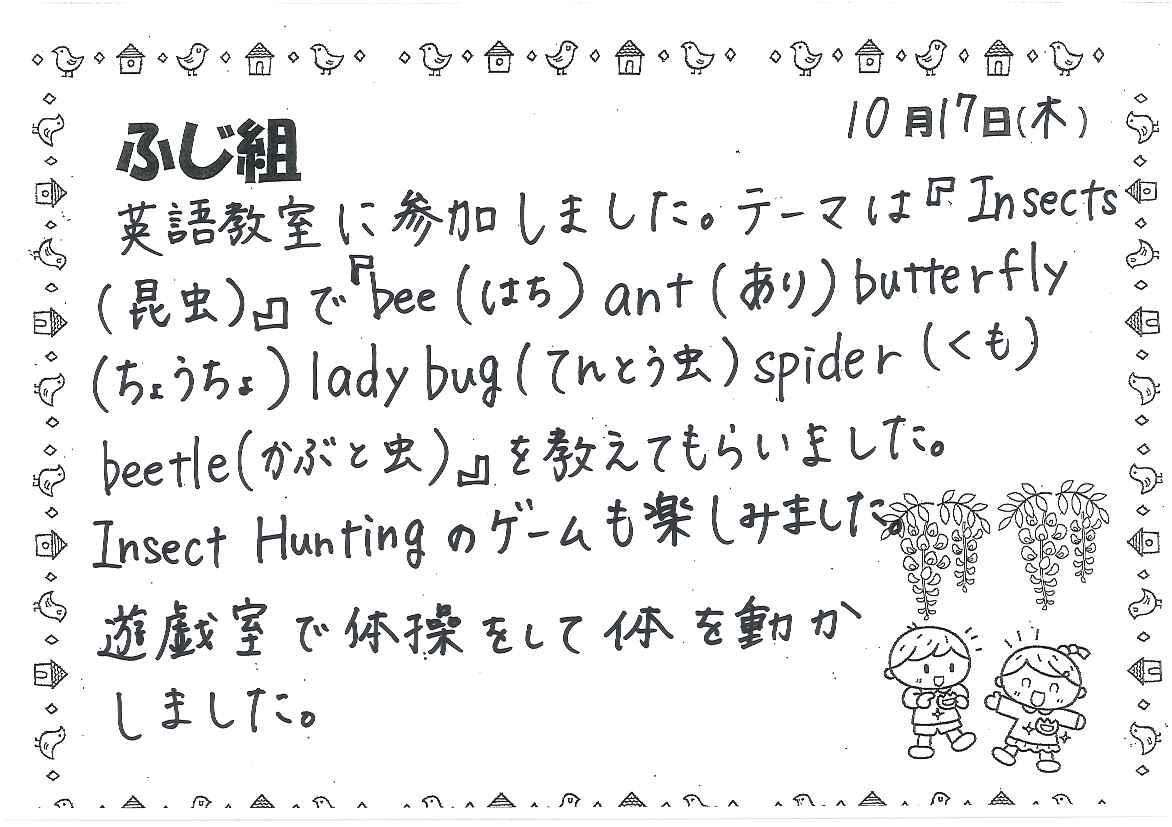 10月17日(木)
ふじ組
英語教室に参加しました。テーマは『Insects
(昆虫)』で『bee(はち)ant(あり)butterfly
(ちょうちょ)lady bug(てんとう虫)spider(くも)
beetle(かぶと虫)』を教えてもらいました。
Insect Huntingのゲームも楽しみました。
遊戯室で体操をして体を動か
しました。